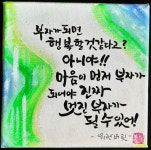 부자가 되면
행복할것같다고?
아니야!!
마음이 먼저 부자가
되어야 진짜
멋진 부자가
될 수 있어!